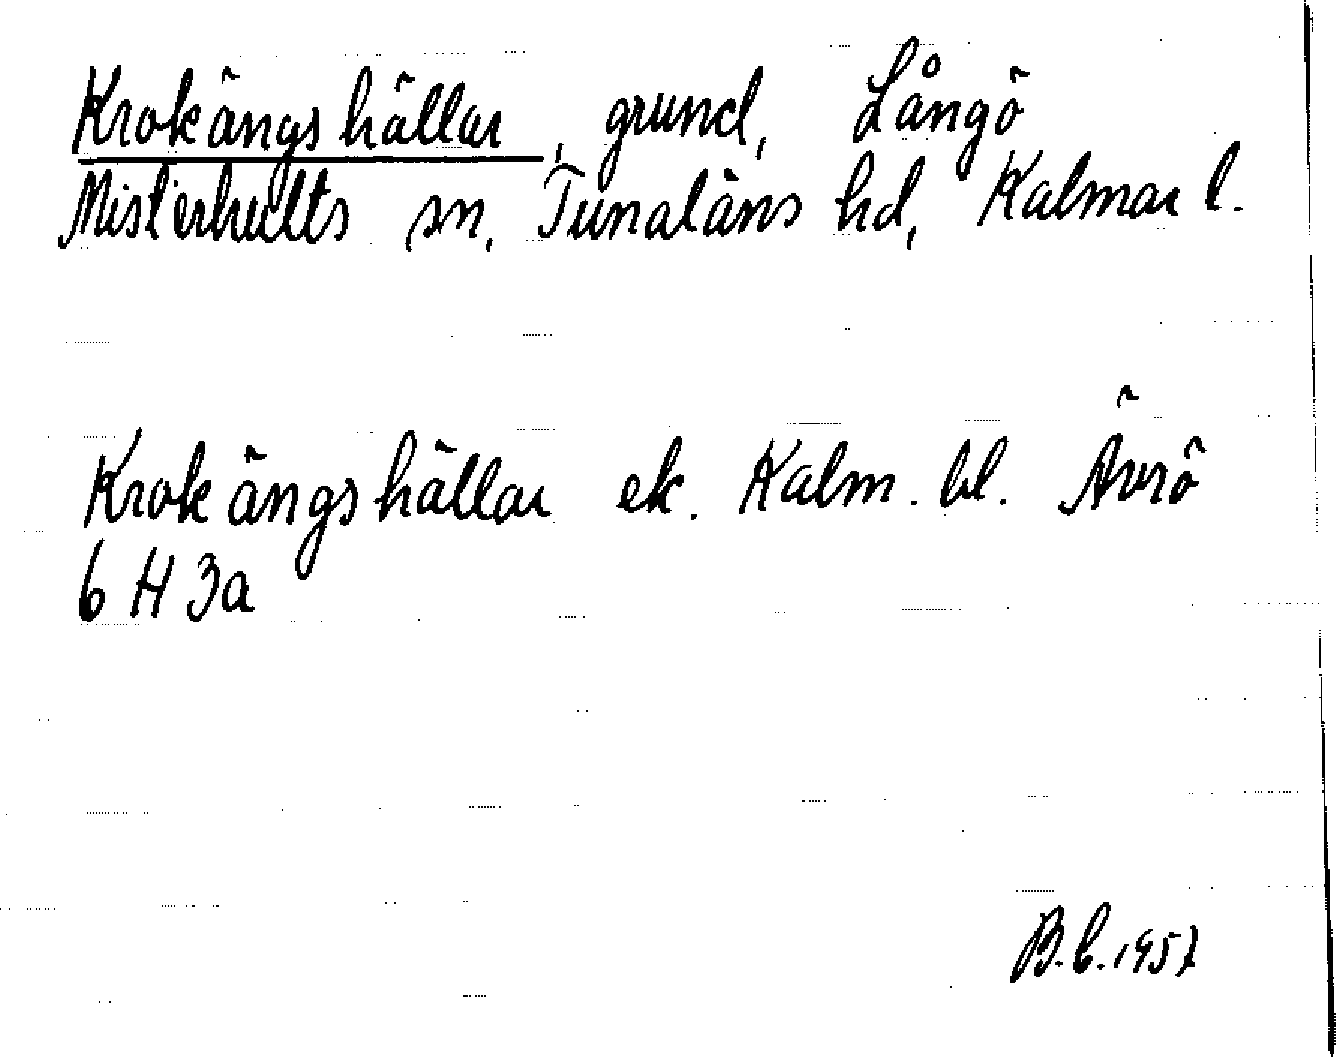 Krokängshällar, grund, Långö
Misterhults sn, Tunaläns hd, Kalmar l.
Krokängshällar ek. Kalm. bl. Ävrö
6 H 3a
B.L. 1957